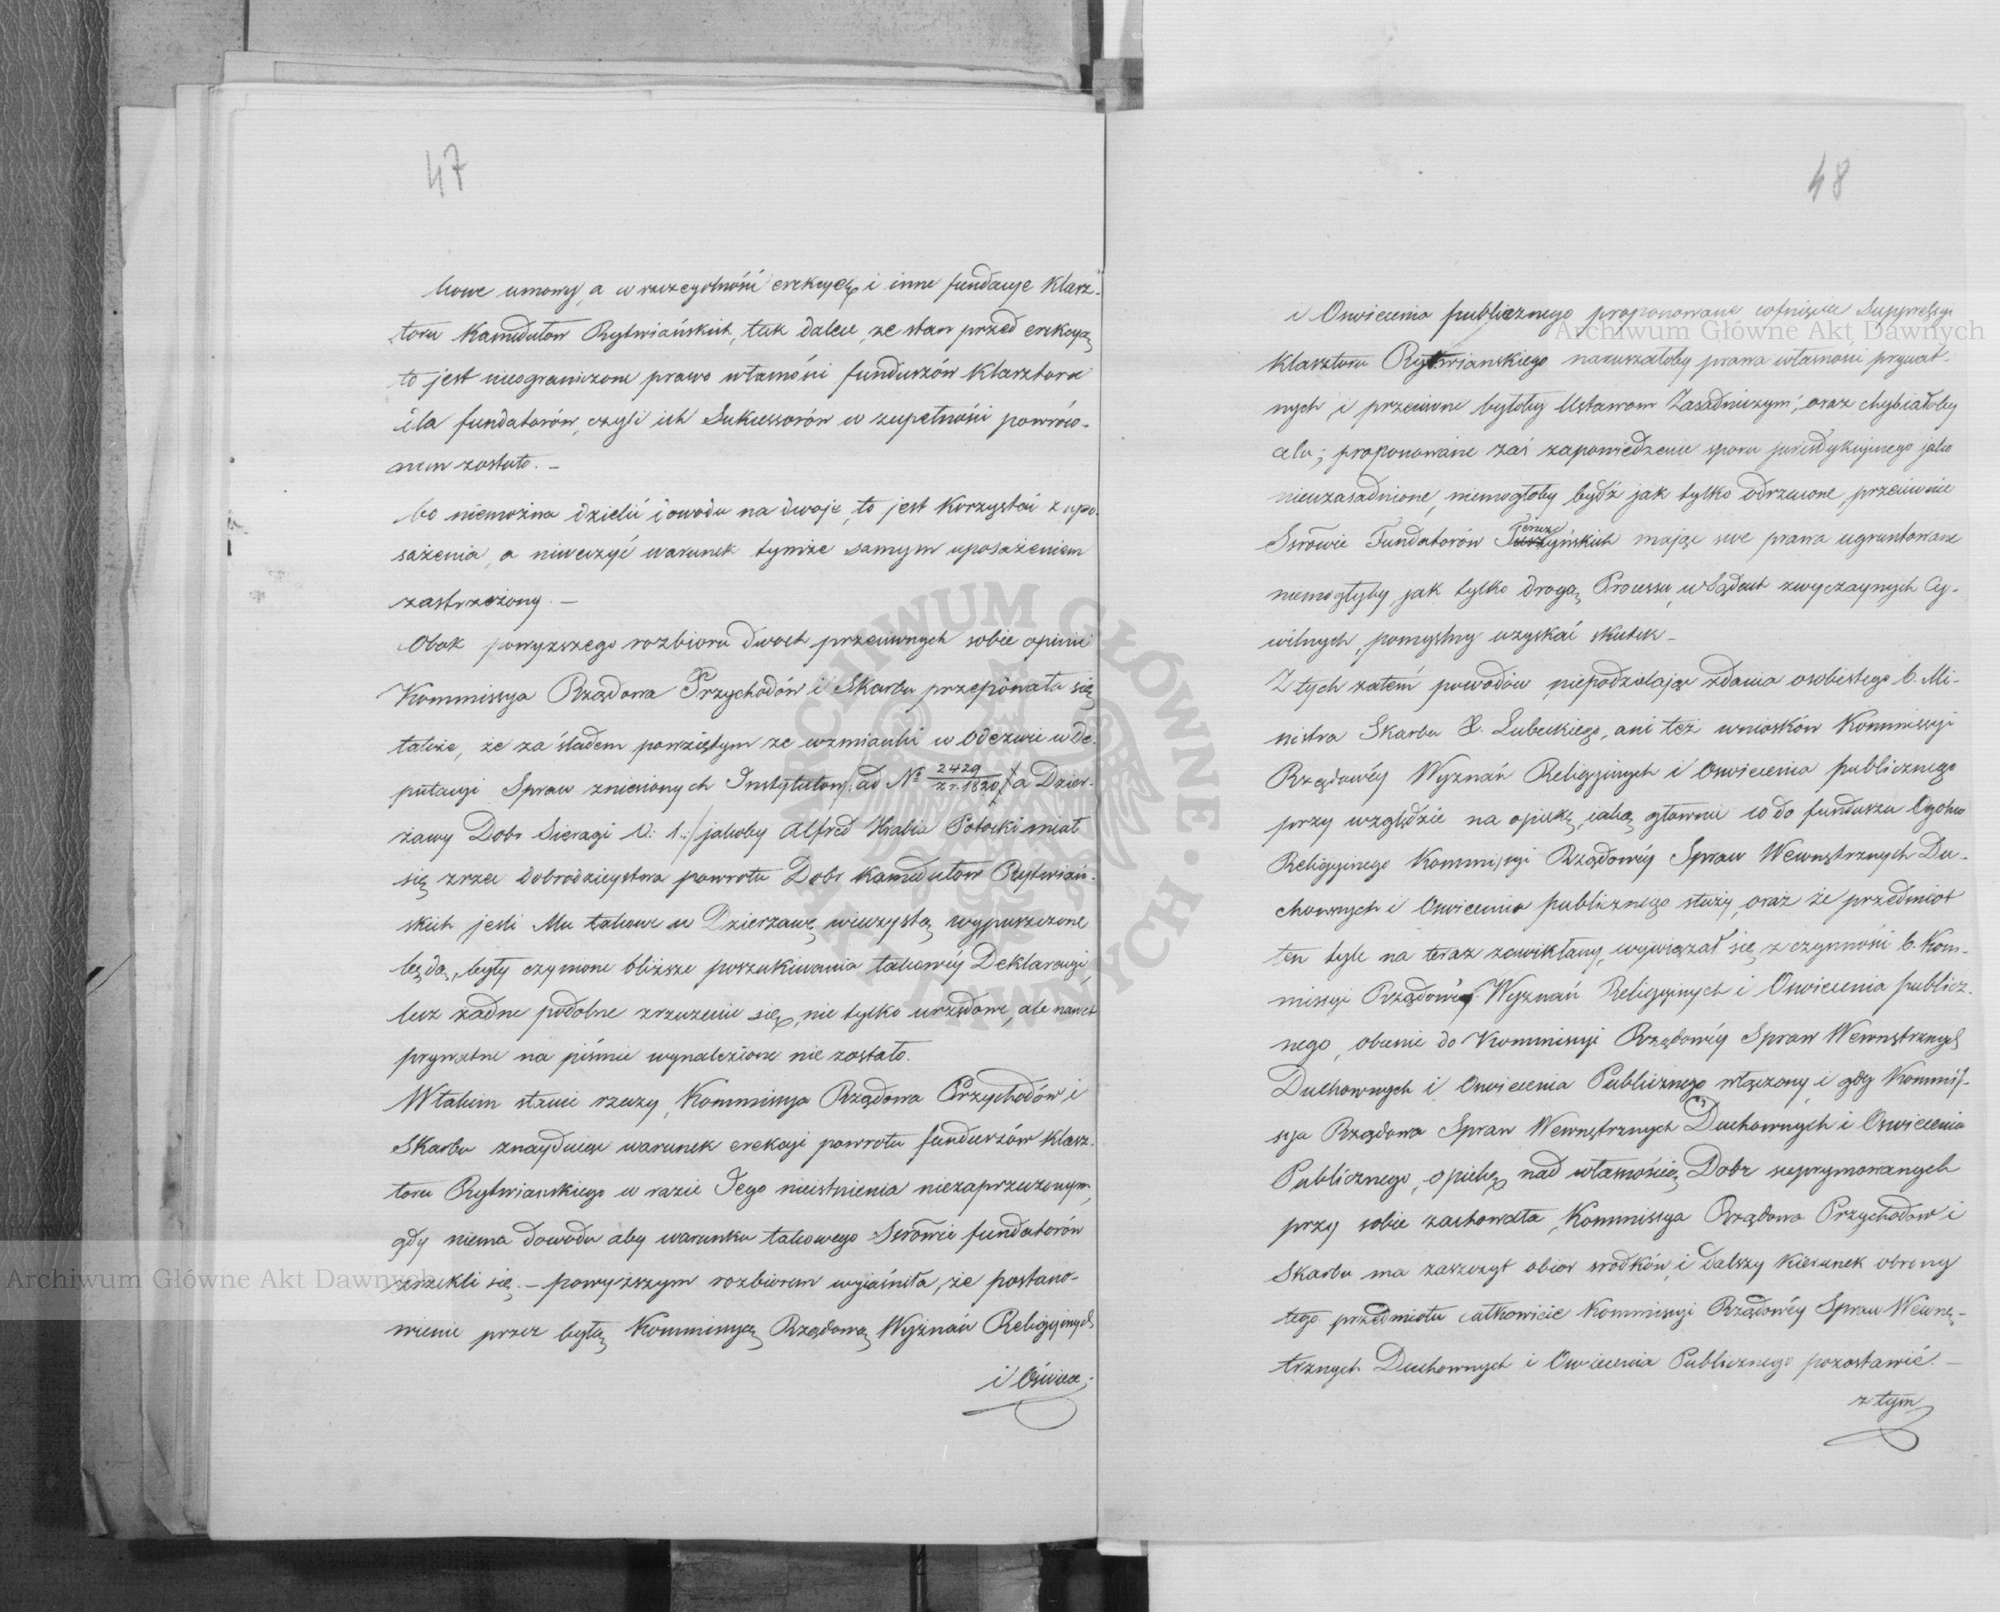 47
kowe umowy, a w szczegolności erekcyę i inne fundacye Klasz-
toru Kamedułow Rytwiańskich, tak dalece, że stan przed erekcyą
to jest nieograniczone prawo własności funduszów Klasztoru
dla fundatorów, czyli ich Sukcessorów w zupełności powróco-
nem zostało. –
bo niemożna dzielić dowodu na dwoje, to jest Korzystać z upo-
sażenia, a niweczyć warunek tymże samym uposażeniem
zastrzeżony. –
Obok powyższego rozbioru dwoch przeciwnych sobie opinii
Kommissya Rządowa Przychodów i Skarbu przekonała się
także, że za śladem powziętym ze wzmianki w Odezwie w De-
putacyi Spraw zniesionych Instytutow /: ad Nº 2429 z r. 1820 :/ a Dzier-
żawy Dobr Sieragi V: 1: / jakoby Alfred Hrabia Potocki miał
się zrzec dobrodzieystwa powrotu Dobr Kamedułow Rytwiań-
skich jeśli Mu takowe w Dzierżawę wieczystą wypuszczone
będą, były czynione bliższe poszukiwania takowéy Deklaracyi,
lecz żadne podobne zrzeczenie się, nie tylko urzędowe, ale nawet
prywatne na piśmie wynalezione nie zostało.
W takim stanie rzeczy, Kommissya Rządowa Przychodów i
Skarbu znayduiąc warunek erekcyi powrotu funduszów Klasz-
toru Rytwianskiego w razie Jego nieistnienia niezaprzeczonym,
gdy niema dowodu aby warunku takowego Sscrowie fundatorów
zrzekli się. – powyższym rozbiorem wyjaśniła, że postano-
wienie przez byłą Kommissyą Rządową Wyznań Religijnych
i Oświece-
48
i Oswiecenia publicznego proponowane cofnięcie Suppressyi
Archiwum Główne Akt Dawnych
Klasztoru Rytwianskiego naruszałoby prawa własności prywat-
nych, i przeciwne byłoby Ustawom Zasadniczym, oraz chybiałoby
celu; proponowane zaś zapowiedzenie sporu juridykcyinego jako
nieuzasadnione, niemogłoby bydź jak tylko odrzucone, przeciwnie
Ssrowie Fundatorów Tęczyńskich mając swe prawa ugruntowane
niemogłyby, jak tylko drogą Processu, w Sądach zwyczaynych Cy-
wilnych, pomyslny uzyskać skutek –
Z tych zatém powodów niepodzielając zdania osobistego b. Mi-
nistra Skarbu X. Lubeckiego, ani też wniosków Kommissyi
Rządowéy Wyznań Religyinych i Oswiecenia publicznego
przy względzie na opiekę, jaką głownie co do funduszu Ogolno
Religyinego Kommissyi Rządowéy Spraw Wewnętrznych Du-
chownych i Oswiecenia publicznego służy, oraz że przedmiot
ten tyle na teraz zawikłany, wywiązał się z czynności b. Kom-
missyi Rządowéy Wyznań Religyinych i Oswiecenia publicz-
nego, obecnie do Kommissyi Rządowéy Spraw Wewnętrznych
Duchownych i Oswiecenia Publicznego włączony, i gdy Kommis-
sya Rządowa Spraw Wewnętrznych Duchownych i Oswiecenia
Publicznego, opiekę nad własnością Dobr supprymowanych
przy sobie zachowała, Kommissya Rządowa Przychodow i
Skarbu ma zaszczyt obior srodków, i dalszy kierunek obrony
tego przedmiotu całkowicie Kommissyi Rządowéy Spraw Wewnę-
trznych Duchownych i Oswiecenia Publicznego pozostawić. –
z tym
Archiwum Główne Akt Dawnych
ARCHIWUM GŁÓWNE AKT DAWNYCH